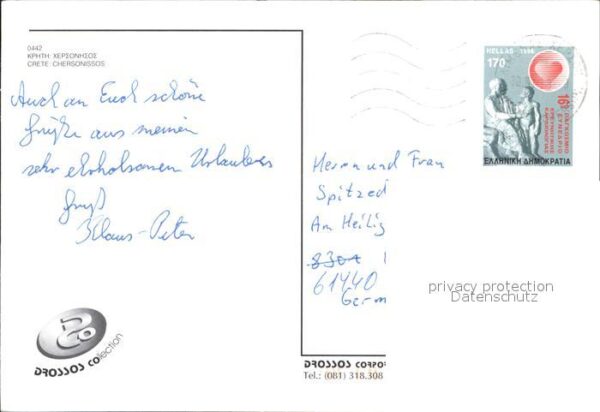 0442
ΚΡΗΤΗ: ΧΕΡΣΟΝΗΣΟΣ
CRETE: CHERSONISSOS
Auch an Euch schöne
Grüße aus meinem
sehr erholsamen Urlaub
Gruß
Klaus-Peter
HELLAS 1996
170
16º ΠΑΓΚΟΣΜΙΟ
ΣΥΝΕΔΡΙΟ
ΕΛΛΗΝΙΚΗ ΔΗΜΟΚΡΑΤΙΑ
Herrn und Frau
Spitzed
Am Heilig
8304
61440
Germ
privacy protection
Datenschutz
DROSSOS collection
DROSSOS CORPO
Tel.: (081) 318.308